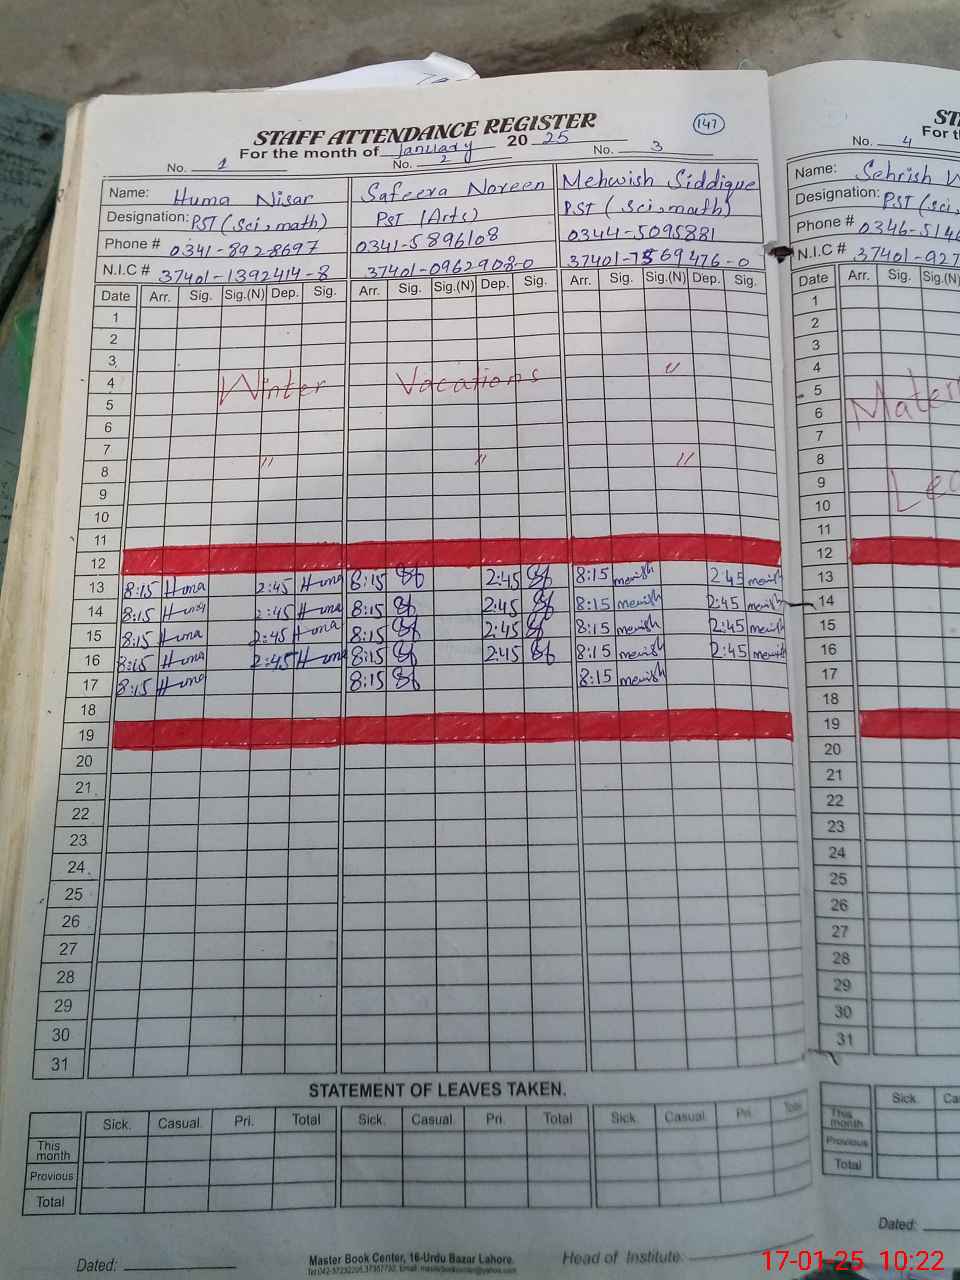 STAFF ATTENDANCE REGISTER
147
For the month of January 2025
No. 1 No. 2 No. 3
Name: Huma Nisar Safeera Noreen Mehwish Siddique
Designation: PST (Sci, math) PST (Arts) PST (Sci, math)
Phone # 0341-8928697 0341-5896108 0344-5095881
N.I.C # 37401-1392414-8 37401-0962908-0 37401-7569476-0
Date Arr. Sig. Sig.(N) Dep. Sig. Arr. Sig. Sig.(N) Dep. Sig. Arr. Sig. Sig.(N) Dep. Sig.
1
2
3
4 Winter Vacations "
5
6
7
8 " " "
9
10
11
12
13 8:15 Huma 2:45 Huma 8:15 2:45 8:15 mewish 2:45 mewish
14 8:15 Huma 2:45 Huma 8:15 2:45 8:15 mewish 2:45 mewish
15 8:15 Huma 2:45 Huma 8:15 2:45 8:15 mewish 2:45 mewish
16 8:15 Huma 2:45 Huma 8:15 2:45 8:15 mewish 2:45 mewish
17 8:15 Huma 8:15 8:15 mewish
18
19
20
21
22
23
24
25
26
27
28
29
30
31
STATEMENT OF LEAVES TAKEN.
Sick. Casual. Pri. Total Sick. Casual. Pri. Total Sick. Casual. Pri. Total
This month
Provious
Total
Dated:
Master Book Center, 16-Urdu Bazar Lahore.
Head of Institute:
ST
For t
No. 4
Name: Sehrish
Designation: PST (Sci,
Phone # 0346-5146
N.I.C # 37401-927
Date Arr. Sig. Sig.(N)
1
2
3
4
5
6 Matern
7
8
9 Lea
10
11
12
13
14
15
16
17
18
19
20
21
22
23
24
25
26
27
28
29
30
31
Sick. Ca
This month
Provious
Total
Dated:
17-01-25 10:22